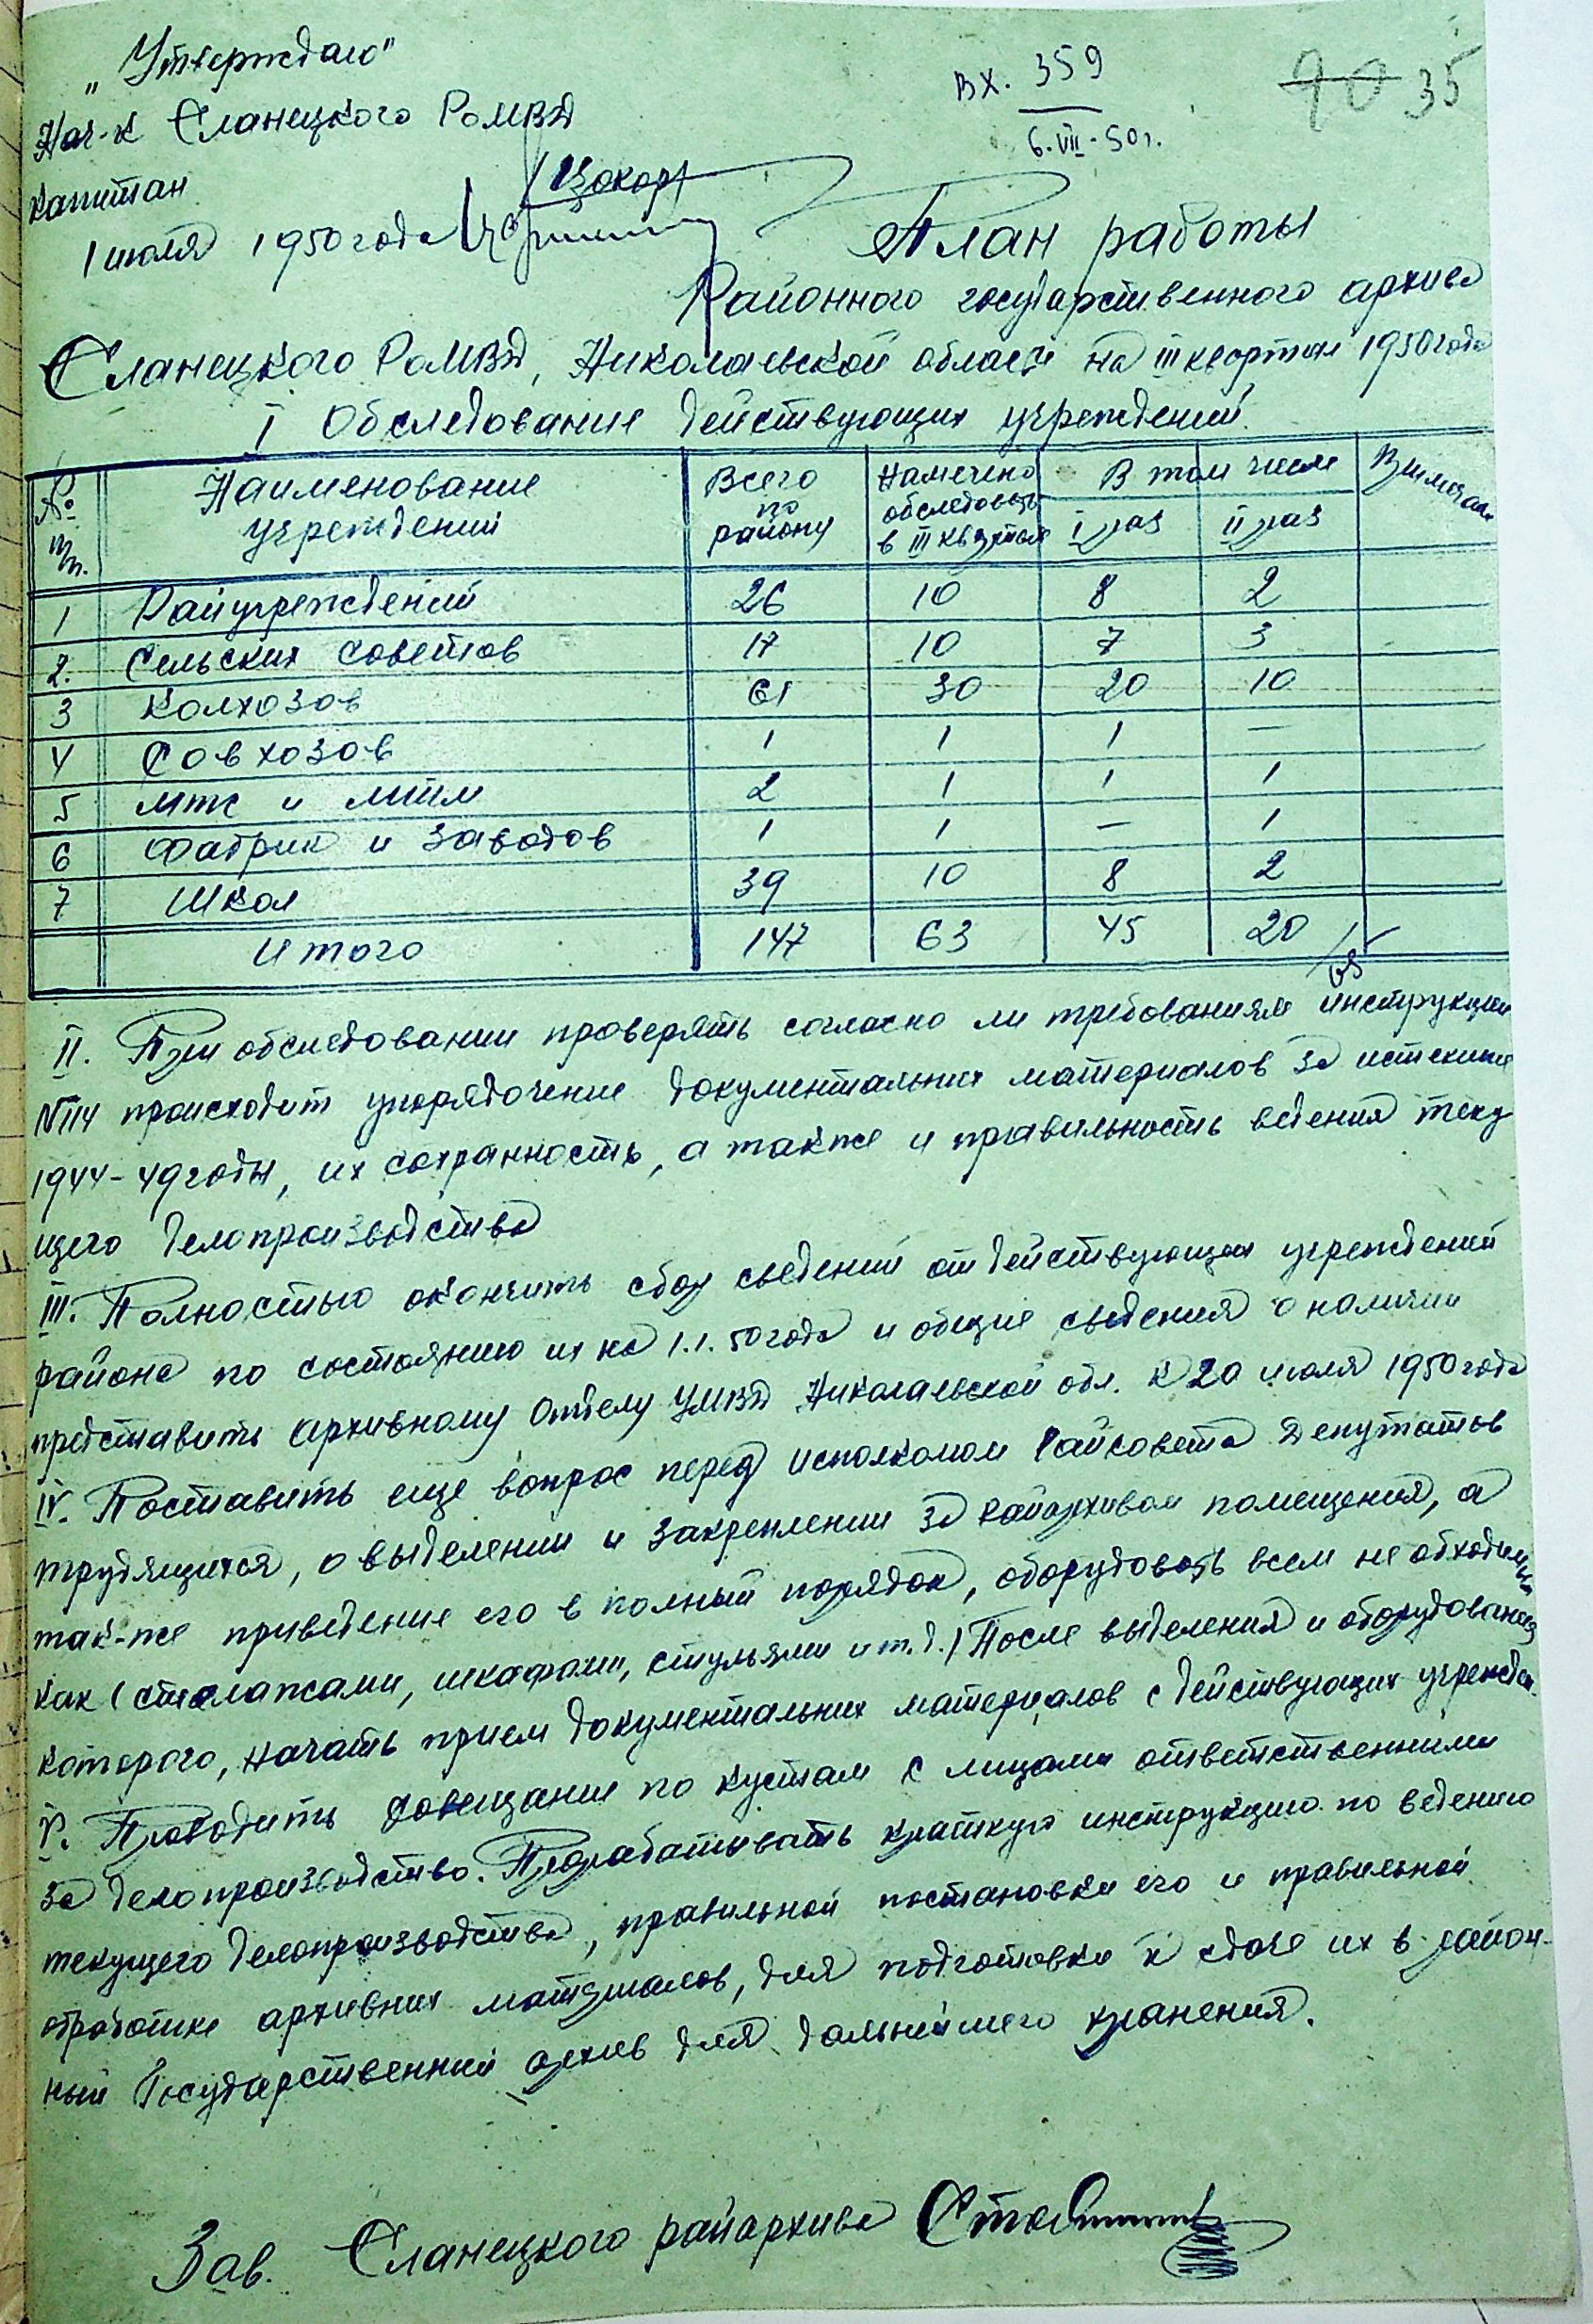 „Утверждаю"
Нач-к Еланецкого РоМВД
капитан
/Цокор/
1 июля 1950 года
Вх. 359
6.VII-50г.
90 35
План работы
Районного государственного архива
Еланецкого РоМВД, Николаевской области на III квартал 1950 года
I Обследование действующих учреждений.
№ пп. | Наименование учреждений | Всего по району | Намечено обследовать в III квартале | В том числе | Примечан.
I раз | II раз
1 Райучреждений 26 10 8 2
2. Сельских советов 17 10 7 3
3 Колхозов 61 30 20 10
4 Совхозов 1 1 1 —
5 мтс и мтм 2 1 1 1
6 Фабрик и заводов 1 1 — 1
7 Школ 39 10 8 2
Итого 147 63 45 20
65
II. При обследовании проверять согласно ли требованиям инструкции
№114 происходит упорядочение документальних материалов за истекшие
1944-49 годы, их сохранность, а также и правильность ведения теку
щего делопроизводства
III. Полностью окончить сбор сведений от действующих учреждений
района по состоянию их на 1.1.50 года и общие сведения о наличии
представить архивному отделу УМВД Николаевской обл. к 20 июля 1950 года
IV. Поставить еще вопрос перед исполкомом Райсовета Депутатов
трудящихся, о выделении и закреплении за Райархивом помещения, а
так-же приведение его в полный порядок, оборудовать всем необходимым
как (стелажами, шкафами, стульями и т.д.) После выделения и оборудования
которого, начать прием документальних материалов с действующих учрежден.
V. Проводить совещание по кустам с лицами ответственними
за делопроизводство. Прорабатывать краткую инструкцию по ведению
текущего делопроизводства, правильной постановки его и правильной
обработке архивних материалов, для подготовки к сдаче их в район-
ный Государственний архив для дальнейшего хранения.
Зав. Еланецкого райархива